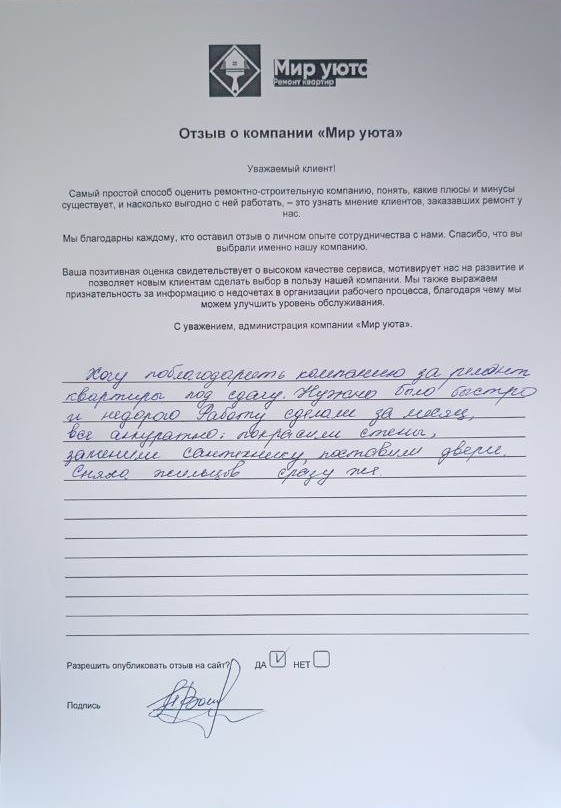 Мир уюта
Ремонт квартир
Отзыв о компании «Мир уюта»
Уважаемый клиент!
Самый простой способ оценить ремонтно-строительную компанию, понять, какие плюсы и минусы
существует, и насколько выгодно с ней работать, – это узнать мнение клиентов, заказавших ремонт у
нас.
Мы благодарны каждому, кто оставил отзыв о личном опыте сотрудничества с нами. Спасибо, что вы
выбрали именно нашу компанию.
Ваша позитивная оценка свидетельствует о высоком качестве сервиса, мотивирует нас на развитие и
позволяет новым клиентам сделать выбор в пользу нашей компании. Мы также выражаем
признательность за информацию о недочетах в организации рабочего процесса, благодаря чему мы
можем улучшить уровень обслуживания.
С уважением, администрация компании «Мир уюта».
Хочу поблагодарить компанию за ремонт
квартиры под сдачу. Нужно было быстро
и недорого Работу сделали за месяц,
все аккуратно: покрасили стены,
заменили сантехнику, поставили двери.
Сняла жильцов сразу же.
Разрешить опубликовать отзыв на сайт? ДА V НЕТ
Подпись